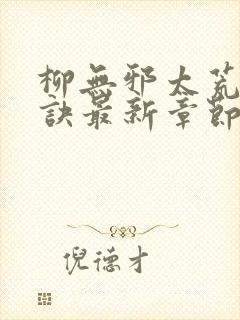 柳無邪太荒
訣最新章節
倪德才